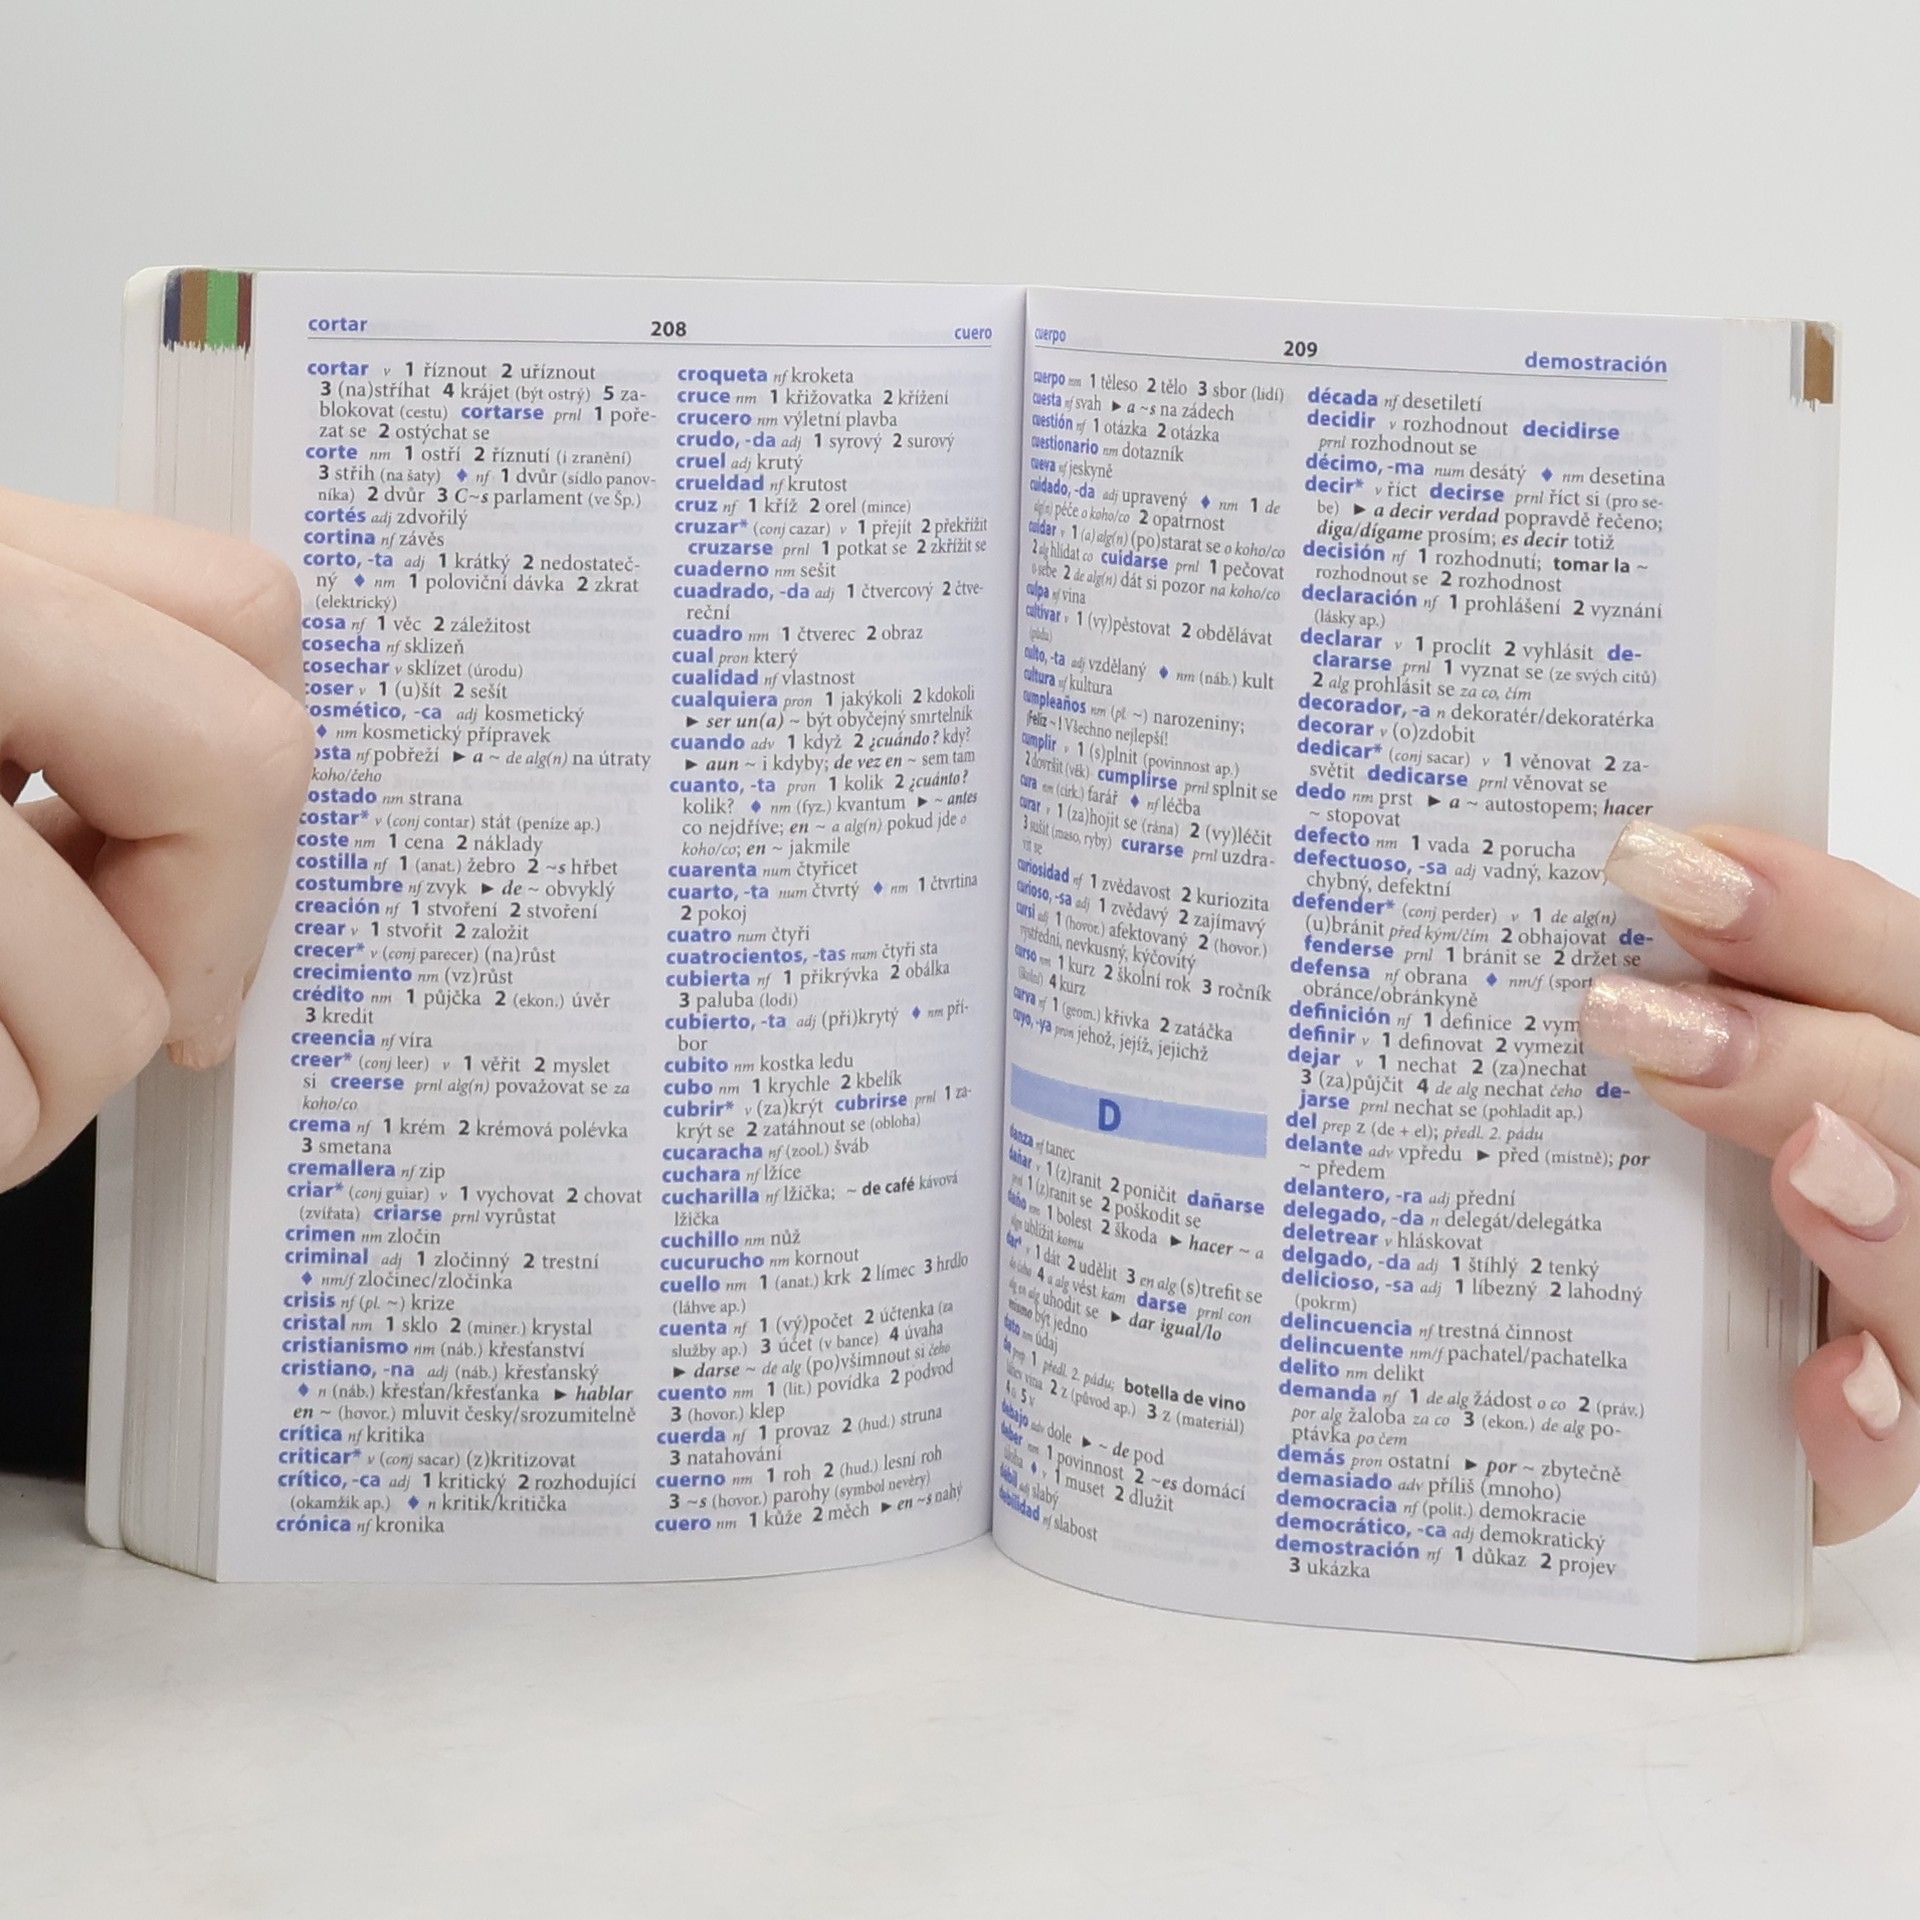 cortar 208 cuero
cortar v 1 říznout 2 uříznout
3 (na)stříhat 4 krájet (být ostrý) 5 za-
blokovat (cestu) cortarse prnl 1 poře-
zat se 2 ostýchat se
corte nm 1 ostří 2 říznutí (i zranění)
3 střih (na šaty) ♦ nf 1 dvůr (sídlo panov-
níka) 2 dvůr 3 C~s parlament (ve Šp.)
cortés adj zdvořilý
cortina nf závěs
corto, -ta adj 1 krátký 2 nedostateč-
ný ♦ nm 1 poloviční dávka 2 zkrat
(elektrický)
cosa nf 1 věc 2 záležitost
cosecha nf sklizeň
cosechar v sklízet (úrodu)
coser v 1 (u)šít 2 sešít
cosmético, -ca adj kosmetický
♦ nm kosmetický přípravek
osta nf pobřeží ► a ~ de alg(n) na útraty
koho/čeho
ostado nm strana
costar* v (conj contar) stát (peníze ap.)
coste nm 1 cena 2 náklady
costilla nf 1 (anat.) žebro 2 ~s hřbet
costumbre nf zvyk ► de ~ obvyklý
creación nf 1 stvoření 2 stvoření
crear v 1 stvořit 2 založit
crecer* v (conj parecer) (na)růst
crecimiento nm (vz)růst
crédito nm 1 půjčka 2 (ekon.) úvěr
3 kredit
creencia nf víra
creer* (conj leer) v 1 věřit 2 myslet
si creerse prnl alg(n) považovat se za
koho/co
crema nf 1 krém 2 krémová polévka
3 smetana
cremallera nf zip
criar* (conj guiar) v 1 vychovat 2 chovat
(zvířata) criarse prnl vyrůstat
crimen nm zločin
criminal adj 1 zločinný 2 trestní
♦ nm/f zločinec/zločinka
crisis nf (pl. ~) krize
cristal nm 1 sklo 2 (miner.) krystal
cristianismo nm (náb.) křesťanství
cristiano, -na adj (náb.) křesťanský
♦ n (náb.) křesťan/křesťanka ► hablar
en ~ (hovor.) mluvit česky/srozumitelně
crítica nf kritika
criticar* v (conj sacar) (z)kritizovat
crítico, -ca adj 1 kritický 2 rozhodující
(okamžik ap.) ♦ n kritik/kritička
crónica nf kronika
croqueta nf kroketa
cruce nm 1 křižovatka 2 křížení
crucero nm výletní plavba
crudo, -da adj 1 syrový 2 surový
cruel adj krutý
crueldad nf krutost
cruz nf 1 kříž 2 orel (mince)
cruzar* (conj cazar) v 1 přejít 2 překřížit
cruzarse prnl 1 potkat se 2 zkřížit se
cuaderno nm sešit
cuadrado, -da adj 1 čtvercový 2 čtve-
reční
cuadro nm 1 čtverec 2 obraz
cual pron který
cualidad nf vlastnost
cualquiera pron 1 jakýkoli 2 kdokoli
► ser un(a) ~ být obyčejný smrtelník
cuando adv 1 když 2 ¿cuándo? kdy?
► aun ~ i kdyby; de vez en ~ sem tam
cuanto, -ta pron 1 kolik 2 ¿cuánto?
kolik? ♦ nm (fyz.) kvantum ► ~ antes
co nejdříve; en ~ a alg(n) pokud jde o
koho/co; en ~ jakmile
cuarenta num čtyřicet
cuarto, -ta num čtvrtý ♦ nm 1 čtvrtina
2 pokoj
cuatro num čtyři
cuatrocientos, -tas num čtyři sta
cubierta nf 1 přikrývka 2 obálka
3 paluba (lodi)
cubierto, -ta adj (při)krytý ♦ nm pří-
bor
cubito nm kostka ledu
cubo nm 1 krychle 2 kbelík
cubrir* v (za)krýt cubrirse prnl 1 za-
krýt se 2 zatáhnout se (obloha)
cucaracha nf (zool.) šváb
cuchara nf lžíce
cucharilla nf lžička; ~ de café kávová
lžička
cuchillo nm nůž
cucurucho nm kornout
cuello nm 1 (anat.) krk 2 límec 3 hrdlo
(láhve ap.)
cuenta nf 1 (vý)počet 2 účtenka (za
služby ap.) 3 účet (v bance) 4 úvaha
► darse ~ de alg (po)všimnout si čeho
cuento nm 1 (lit.) povídka 2 podvod
3 (hovor.) klep
cuerda nf 1 provaz 2 (hud.) struna
3 natahování
cuerno nm 1 roh 2 (hud.) lesní roh
3 ~s (hovor.) parohy (symbol nevěry)
cuero nm 1 kůže 2 měch ► en ~s nahý
cuerpo 209 demostración
cuerpo nm 1 těleso 2 tělo 3 sbor (lidí)
cuesta nf svah ► a ~s na zádech
cuestión nf 1 otázka 2 otázka
cuestionario nm dotazník
cueva nf jeskyně
cuidado, -da adj upravený ♦ nm 1 de
alg(n) péče o koho/co 2 opatrnost
cuidar v 1 (a) alg(n) (po)starat se o koho/co
2 alg hlídat co cuidarse prnl 1 pečovat
o sebe 2 de alg(n) dát si pozor na koho/co
culpa nf vina
cultivar v 1 (vy)pěstovat 2 obdělávat
(půdu)
culto, -ta adj vzdělaný ♦ nm (náb.) kult
cultura nf kultura
cumpleaños nm (pl. ~) narozeniny;
¡Feliz ~! Všechno nejlepší!
cumplir v 1 (s)plnit (povinnost ap.)
2 dovršit (věk) cumplirse prnl splnit se
cura nm (círk.) farář ♦ nf léčba
curar v 1 (za)hojit se (rána) 2 (vy)léčit
3 sušit (maso, ryby) curarse prnl uzdra-
vit se
curiosidad nf 1 zvědavost 2 kuriozita
curioso, -sa adj 1 zvědavý 2 zajímavý
cursi adj 1 (hovor.) afektovaný 2 (hovor.)
výstřední, nevkusný, kýčovitý
curso nm 1 kurz 2 školní rok 3 ročník
(školní) 4 kurz
curva nf 1 (geom.) křivka 2 zatáčka
cuyo, -ya pron jehož, jejíž, jejichž
D
danza nf tanec
dañar v 1 (z)ranit 2 poničit dañarse
prnl 1 (z)ranit se 2 poškodit se
daño nm 1 bolest 2 škoda ► hacer ~ a
algn ublížit komu
dar* v 1 dát 2 udělit 3 en alg (s)trefit se
do čeho 4 a alg vést kam darse prnl con
alg en alg uhodit se ► dar igual/lo
mismo být jedno
dato nm údaj
de prep 1 předl. 2. pádu; botella de vino
láhev vína 2 z (původ ap.) 3 z (materiál)
4 o 5 v
debajo adv dole ► ~ de pod
deber nm 1 povinnost 2 ~es domácí
úloha ♦ v 1 muset 2 dlužit
débil adj slabý
debilidad nf slabost
década nf desetiletí
decidir v rozhodnout decidirse
prnl rozhodnout se
décimo, -ma num desátý ♦ nm desetina
decir* v říct decirse prnl říct si (pro se-
be) ► a decir verdad popravdě řečeno;
diga/dígame prosím; es decir totiž
decisión nf 1 rozhodnutí; tomar la ~
rozhodnout se 2 rozhodnost
declaración nf 1 prohlášení 2 vyznání
(lásky ap.)
declarar v 1 proclít 2 vyhlásit de-
clararse prnl 1 vyznat se (ze svých citů)
2 alg prohlásit se za co, čím
decorador, -a n dekoratér/dekoratérka
decorar v (o)zdobit
dedicar* (conj sacar) v 1 věnovat 2 za-
světit dedicarse prnl věnovat se
dedo nm prst ► a ~ autostopem; hacer
~ stopovat
defecto nm 1 vada 2 porucha
defectuoso, -sa adj vadný, kazov
chybný, defektní
defender* (conj perder) v 1 de alg(n)
(u)bránit před kým/čím 2 obhajovat de-
fenderse prnl 1 bránit se 2 držet se
defensa nf obrana ♦ nm/f (sport
obránce/obránkyně
definición nf 1 definice 2 vym
definir v 1 definovat 2 vymezit
dejar v 1 nechat 2 (za)nechat
3 (za)půjčit 4 de alg nechat čeho de-
jarse prnl nechat se (pohladit ap.)
del prep z (de + el); předl. 2. pádu
delante adv vpředu ► před (místně); por
~ předem
delantero, -ra adj přední
delegado, -da n delegát/delegátka
deletrear v hláskovat
delgado, -da adj 1 štíhlý 2 tenký
delicioso, -sa adj 1 líbezný 2 lahodný
(pokrm)
delincuencia nf trestná činnost
delincuente nm/f pachatel/pachatelka
delito nm delikt
demanda nf 1 de alg žádost o co 2 (práv.)
por alg žaloba za co 3 (ekon.) de alg po-
ptávka po čem
demás pron ostatní ► por ~ zbytečně
demasiado adv příliš (mnoho)
democracia nf (polit.) demokracie
democrático, -ca adj demokratický
demostración nf 1 důkaz 2 projev
3 ukázka